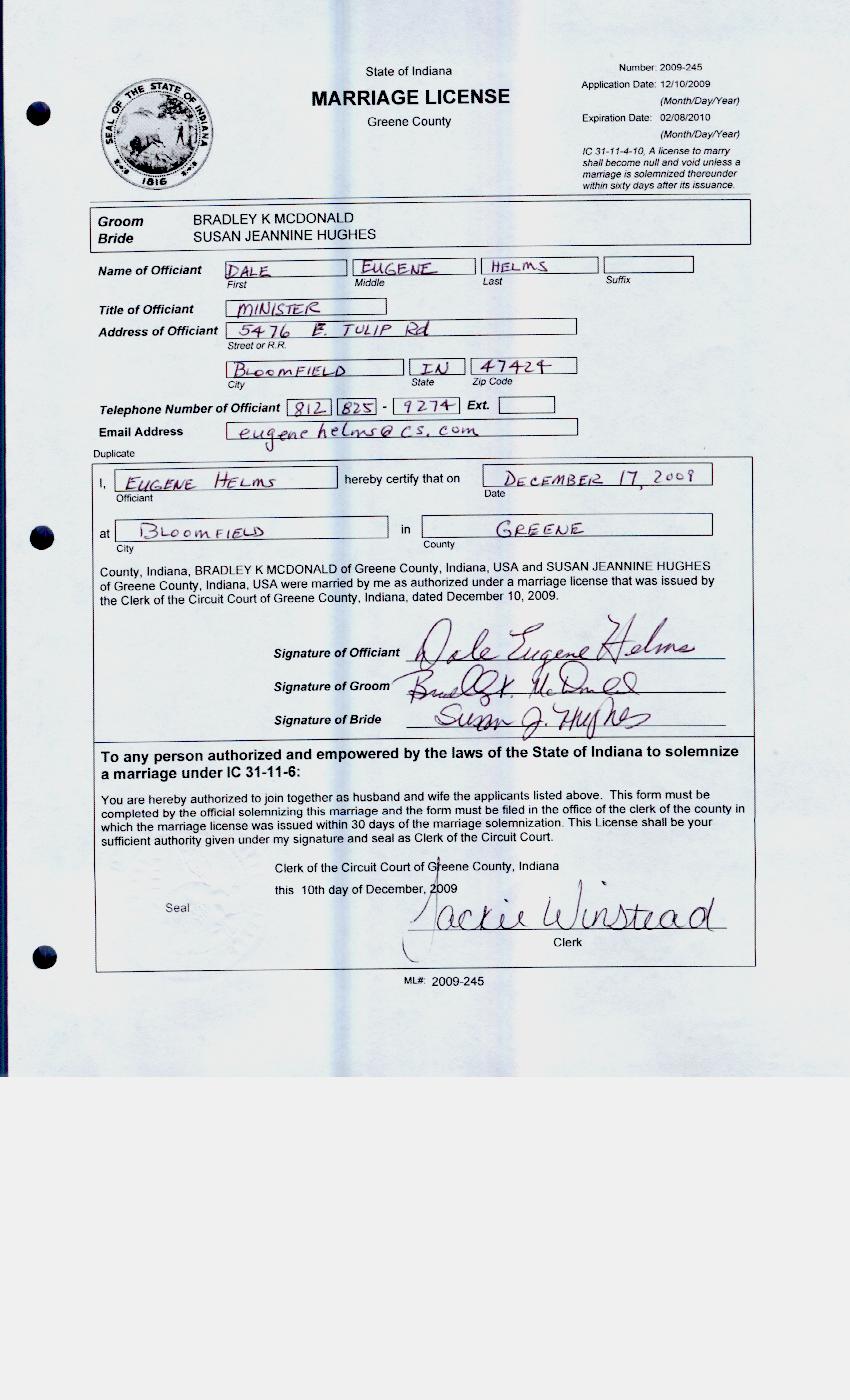 State of Indiana
MARRIAGE LICENSE
Greene County
SEAL OF THE STATE OF INDIANA
1816
Number: 2009-245
Application Date: 12/10/2009
(Month/Day/Year)
Expiration Date: 02/08/2010
(Month/Day/Year)
IC 31-11-4-10, A license to marry
shall become null and void unless a
marriage is solemnized thereunder
within sixty days after its issuance.
Groom BRADLEY K MCDONALD
Bride SUSAN JEANNINE HUGHES
Name of Officiant DALE EUGENE HELMS
First Middle Last Suffix
Title of Officiant MINISTER
Address of Officiant 5476 E. TULIP Rd
Street or R.R.
BLOOMFIELD IN 47424
City State Zip Code
Telephone Number of Officiant 812 825 - 9274 Ext.
Email Address eugenehelms@cs.com
Duplicate
I, EUGENE HELMS hereby certify that on DECEMBER 17, 2009
Officiant Date
at BLOOMFIELD in GREENE
City County
County, Indiana, BRADLEY K MCDONALD of Greene County, Indiana, USA and SUSAN JEANNINE HUGHES
of Greene County, Indiana, USA were married by me as authorized under a marriage license that was issued by
the Clerk of the Circuit Court of Greene County, Indiana, dated December 10, 2009.
Signature of Officiant Dale Eugene Helms
Signature of Groom Bradley K. McDonald
Signature of Bride Susan J. Hughes
To any person authorized and empowered by the laws of the State of Indiana to solemnize
a marriage under IC 31-11-6:
You are hereby authorized to join together as husband and wife the applicants listed above. This form must be
completed by the official solemnizing this marriage and the form must be filed in the office of the clerk of the county in
which the marriage license was issued within 30 days of the marriage solemnization. This License shall be your
sufficient authority given under my signature and seal as Clerk of the Circuit Court.
Clerk of the Circuit Court of Greene County, Indiana
this 10th day of December, 2009
Seal Jackie Winstead
Clerk
ML#: 2009-245